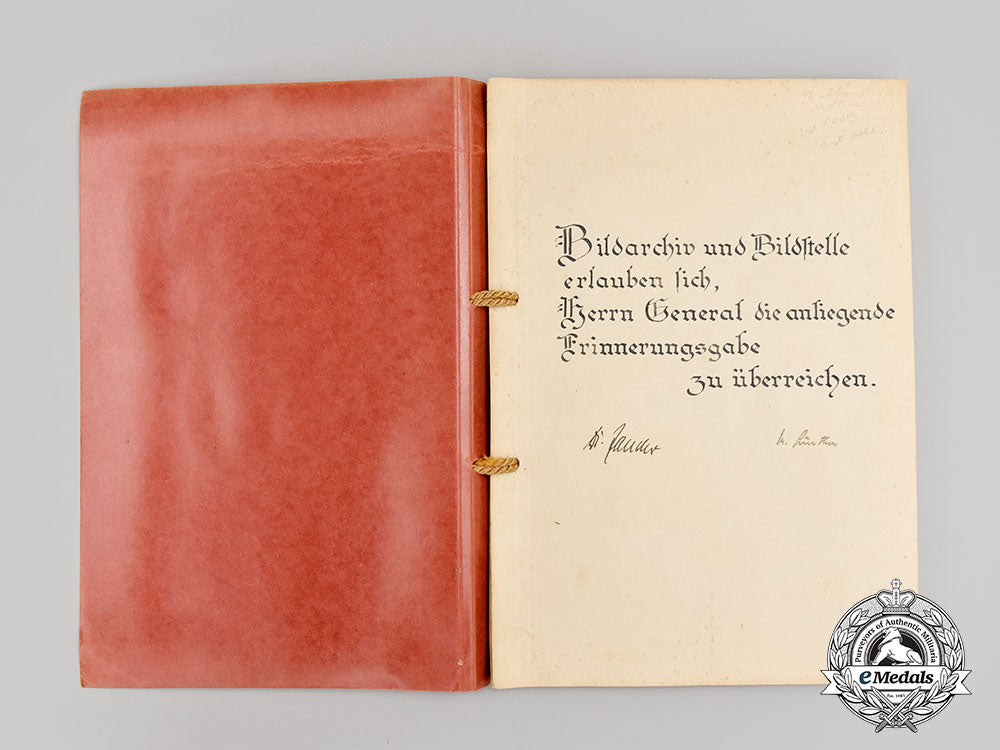 Bildarchiv und Bildstelle
erlauben sich,
Herrn General die anliegende
Erinnerungsgabe
zu überreichen.
Purveyors of Authentic Militaria
eMedals